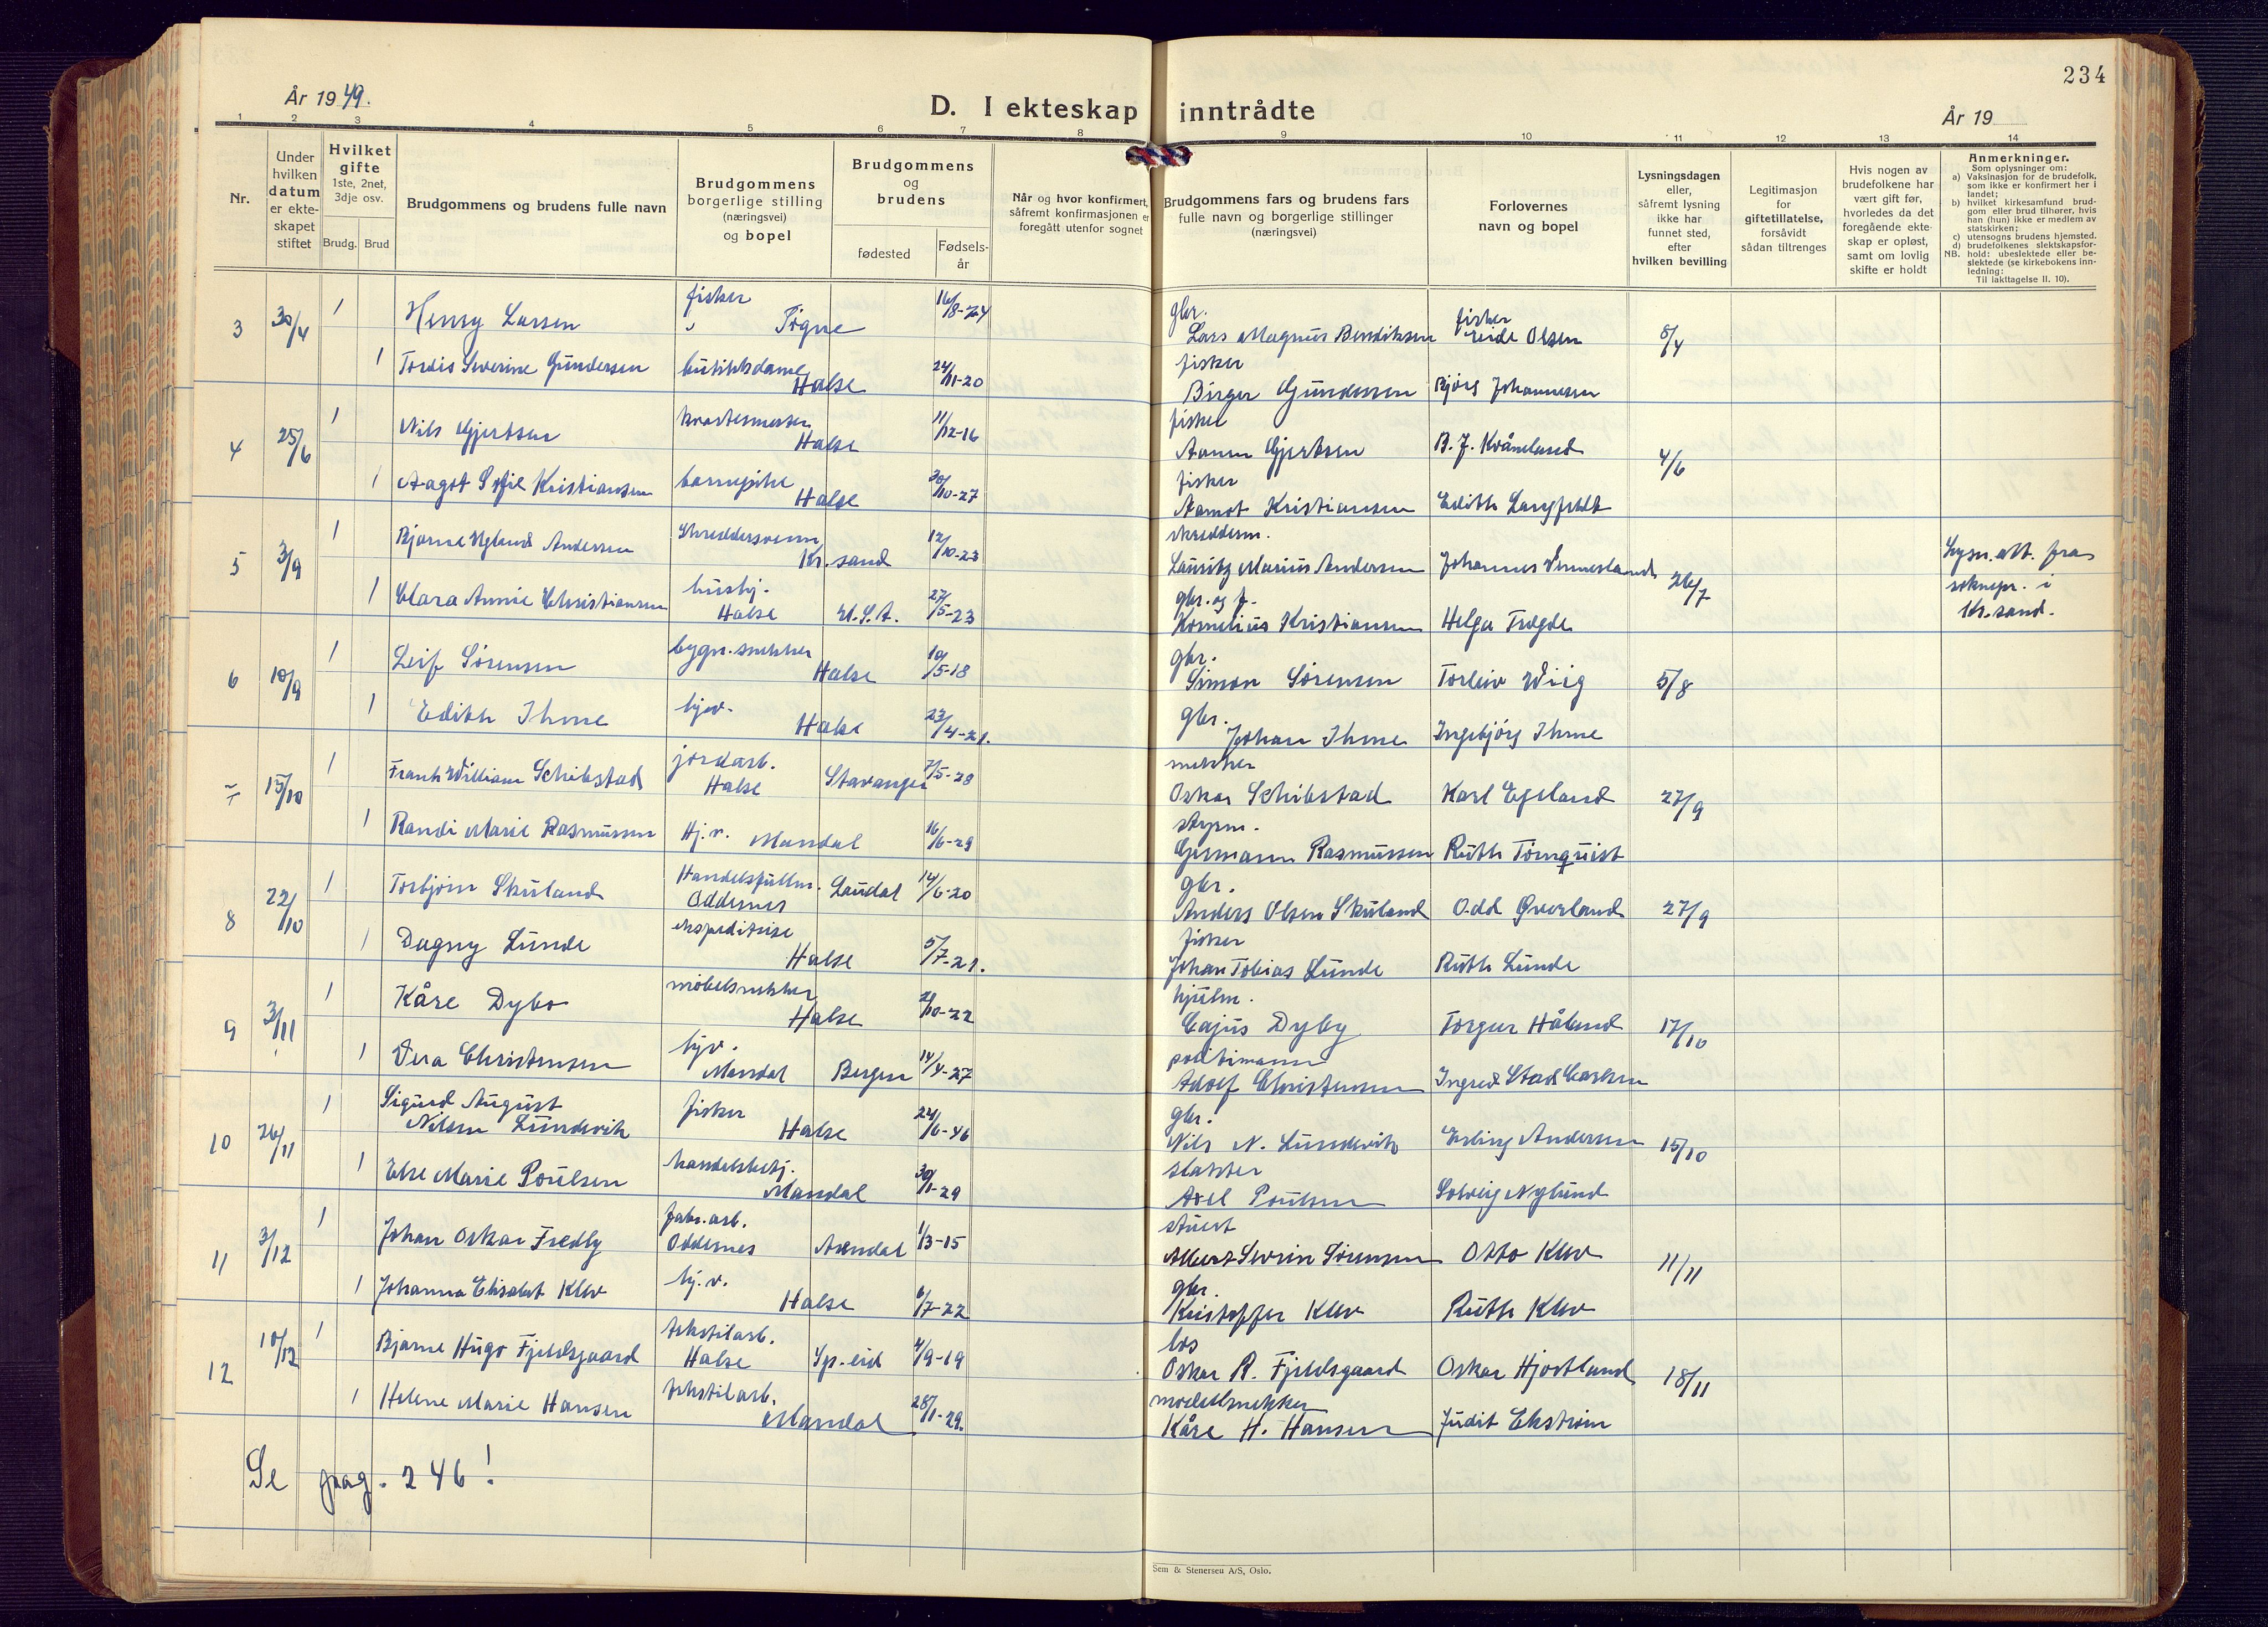 234
År 1949.
D. I ekteskap inntrådte
År 19
1 2 3 4 5 6 7 8 9 10 11 12 13 14
Nr.
Under
hvilken
datum
er ekte-
skapet
stiftet
Hvilket
gifte
1ste, 2net,
3dje osv.
Brudg. Brud
Brudgommens og brudens fulle navn
Brudgommens
borgerlige stilling
(næringsvei)
og bopel
Brudgommens
og
brudens
fødested
Fødsels-
år
Når og hvor konfirmert,
såfremt konfirmasjonen er
foregått utenfor sognet
Brudgommens fars og brudens fars
fulle navn og borgerlige stillinger
(næringsvei)
Forlovernes
navn og bopel
Lysningsdagen
eller,
såfremt lysning
ikke har
funnet sted,
efter
hvilken bevilling
Legitimasjon
for
giftetillatelse,
forsåvidt
sådan tiltrenges
Hvis nogen av
brudefolkene har
vært gift før,
hvorledes da det
foregående ekte-
skap er opløst,
samt om lovlig
skifte er holdt
Anmerkninger.
Som oplysninger om:
a) Vaksinasjon for de brudefolk,
som ikke er konfirmert her i
landet;
b) hvilket kirkesamfund brud-
gom eller brud tilhører, hvis
han (hun) ikke er medlem av
statskirken;
c) utensogns brudens hjemsted.
d) brudefolkenes slektskapsfor-
NB. hold: ubeslektede eller be-
slektede (se kirkebokens inn-
ledning:
Til iakttagelse II. 10).
3 30/4 1 Henry Larsen fisker Søgne 16/8-24 gbr. Lars Magnus Bendiksen fisker Olsen 5/4
1 Tordis Severine Gundersen butikkdame Halse 24/11-20 fisker Birger Gundersen Bjørg Johannesen
4 25/6 1 Nils Gjertsen Halse 11/12-16 fisker Gjertsen B. J. Kvåneland 4/6
1 Aagot Sofie Kristiansen barnepike Halse 30/10-27 fisker Kristiansen Edith Langfeldt
5 3/9 1 Bjarne Nyland Andersen Skreddersvenn Kr.sand 12/10-23 skredderm. Lauritz Marius Andersen Johannes Vennesland 26/7 Lysn.att. fra soknepr. i Kr.sand.
1 Clara Annie Christiansen hushj. Halse U.S.A. 27/5-23 gbr. og f. Kornelius Kristiansen Helga Tregde
6 10/9 1 Leif Sørensen bygn.snekker Halse 10/5-18 gbr. Simon Sørensen Torleiv Wiig 5/8
1 Edith Ihme hjv. Halse 23/4-21. gbr. Johan Ihme Ingebjørg Ihme
7 15/10 1 Frank William Schibstad jordarb. Halse Stavanger 7/5-28 snekker Oskar Schibstad Karl Egeland 27/9
1 Randi Marie Rasmussen Hj.v. Mandal 16/6-29 styrm. Germann Rasmussen Ruth Tørnquist
8 22/10 1 Torbjørn Skuland Handelsfullm. Oddernes Laudal 14/6-20 gbr. Anders Olsen Skuland Odd Øverland 27/9
1 Dagny Lunde ekspeditrise Halse 5/7-21. fisker Johan Tobias Lunde Ruth Lunde
9 3/11 1 Kåre Dybo møbelsnekker Halse 2/10-22 hjulm. Cajus Dyby Torgur Håland 17/10
1 Vera Christensen hjv. Mandal Bergen 14/4-27 politimann Adolf Christensen Ingrid Stad Carlsen
10 26/11 1 Sigurd August Nilsen Lundevik fisker Halse 24/6-46 gbr. Nils N. Lundevik Erling Andersen 15/10
1 Else Marie Poulsen handelsbetj. Mandal 30/1-29 slakter Axel Poulsen Solveig Nylund
11 3/12 1 Johan Oskar Fredly fabr.arb. Oddernes Arendal 1/3-15 stuert Albert Severin Sørensen Otto Klev 11/11
1 Johanna Elisabet Klev hj.v. Halse 6/7-22 gbr. Kristoffer Klev Ruth Klev
12 10/12 1 Bjarne Hugo Fjeldsgaard tekstilarb. Halse Sp.eid 4/9-19 los Oskar R. Fjeldsgaard Oskar Hjortland 18/11
1 Helene Marie Hansen tekstilarb. Mandal 28/1-29. modellsnekker Kåre H. Hansen Judit Ekstrøm
Se pag. 246!
Sem & Stenersen A/S, Oslo.